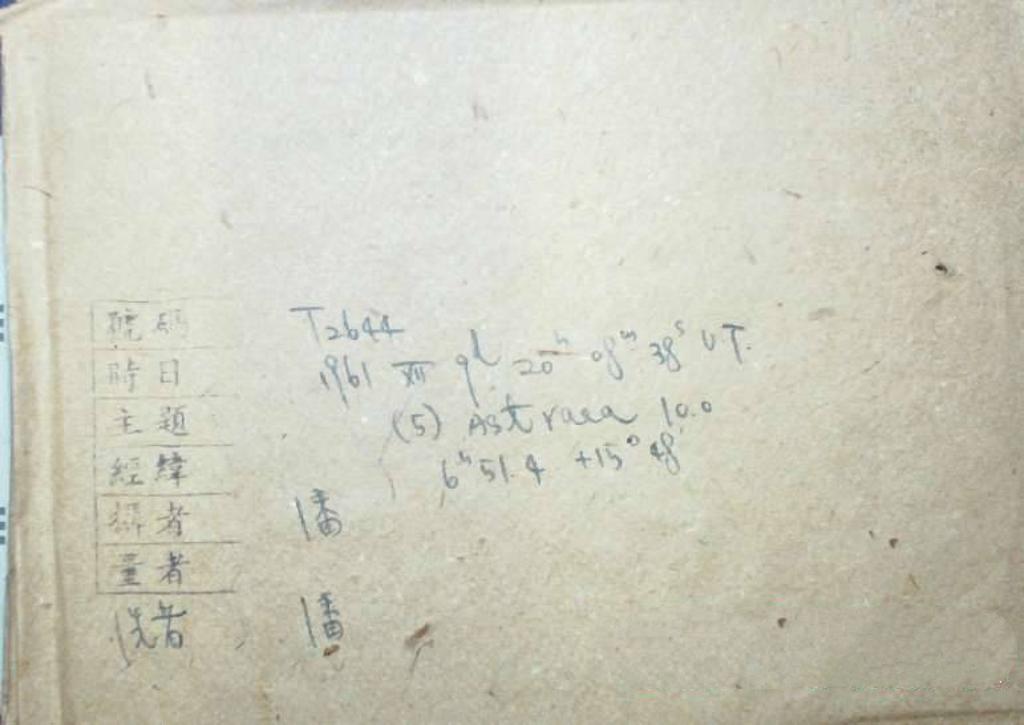 號碼 T2644
時日 1961 XII 9d 20h 08m 38s UT.
主題 (5) Astraea 10.0
經緯 6h 51.4 +15° 48
攝者 潘
量者
洗者 潘